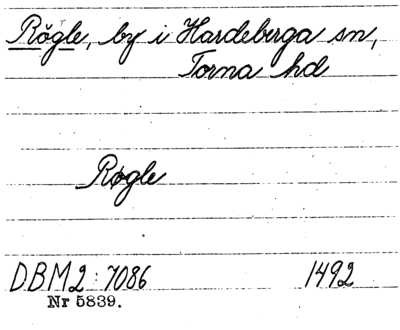 Rögle, by i Hardeberga sn,
Torna hd
Røgle
DBM2:7086 1492
Nr 5839.